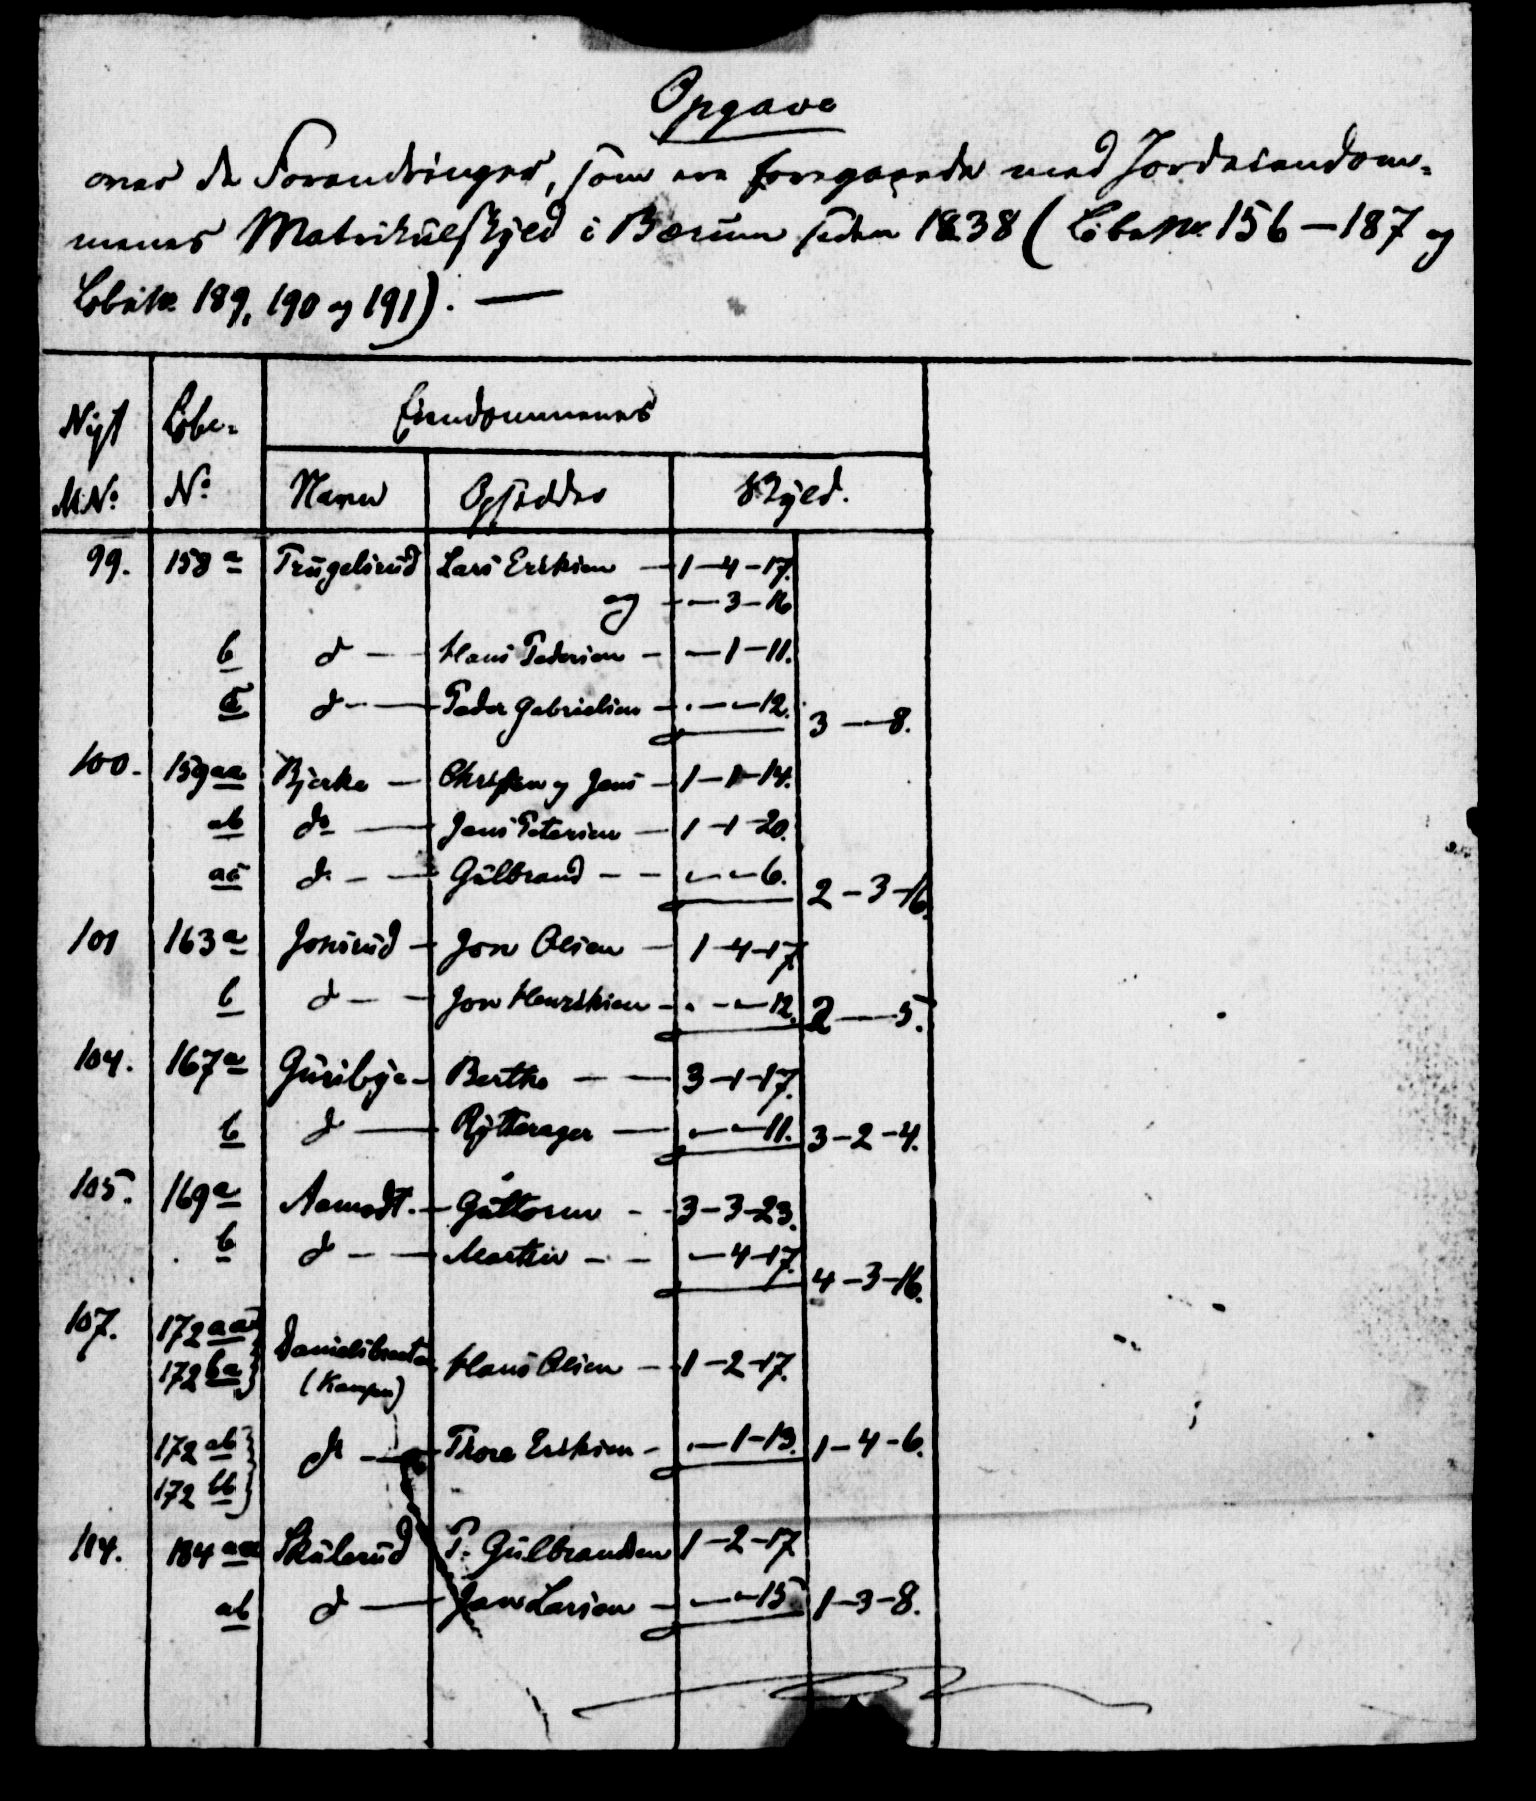 Opgave
over de Forandringer, som ere foregaaede med Jordeiendom-
menes Matrikulskyld i Bærum siden 1838 (LøbeNr. 156 — 187 og
LøbeNr. 189, 190 og 191). —
Nyt MNo. Løbe- No. Eiendommenes
Navn Opsidder Skyld.
99. 158 a Trugelsrud Lars Eriksen — 1-4-17.
og - — 3-16
b d — Hans Pedersen — — 1-11.
c d — Peder Gabrielsen - . — — 12. 3 — 8.
100. 159 aa Bjerke — Christen og Jens — 1-1-14.
ab do — Jens Petersen — 1-1-20.
ac d. — Gulbrand — — — 6. 2-3-16.
101 163 a Jonsrud — Jon Olsen — 1-4-17
b d — Jon Henriksen — . — — 12. 2 — 5.
104. 167 a Guribye — Berthe — 3-1-17.
b d — Rytterager — — — 11. 3-2-4.
105. 169 a Aamodt. — Guttorm — 3-3-23.
b d — Martin — — 4-17. 4-3-16.
107. 172 aa
172 ba } Danielsbraaten (Kampen) Hans Olsen — 1-2-17.
172 ab
172 bb } do — Thore Eriksen — . — 1-13. 1-4-6.
114. 184 aa Skulerud P. Gulbrandsen 1-2-17
ab d — Jan Larsen — — — 15 1-3-8.